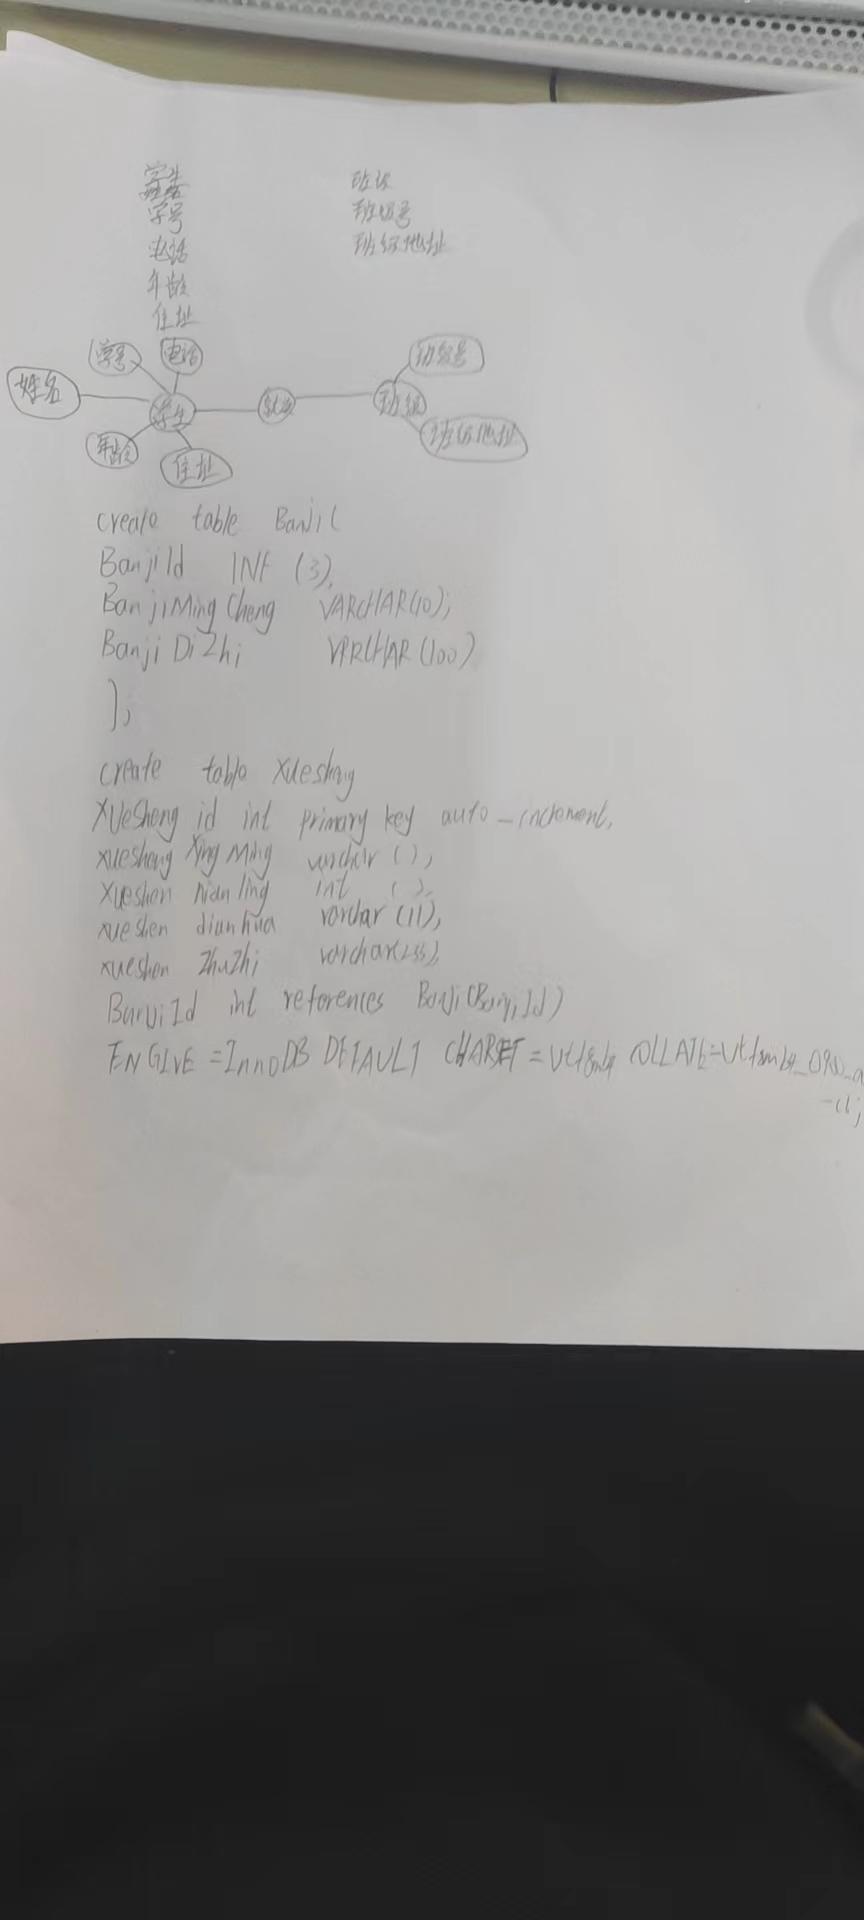 学生
学号
电话
年龄
住址
班级
班级号
班级地址
学号 电话 班级号
姓名 学生 班级
年龄 住址 班级地址
create table BanJi(
BanjiId INT (3),
BanjiMingCheng VARCHAR(10);
Banji DiZhi VARCHAR(100)
);
create table Xuesheng
XUeSheng id int primary key auto_increment,
xuesheng Xing Ming varchar ( ),
Xueshen nian ling int ( ),
xueshen dianhua varchar (11),
xueshen Zhuzhi varchar(255),
BanJiId int references BanJi(BanjiId)
ENGIVE =InnoDB DEFAULT CHARSET = utf8mb4 COLLATE=utf8mb4_0900_a
-ci;